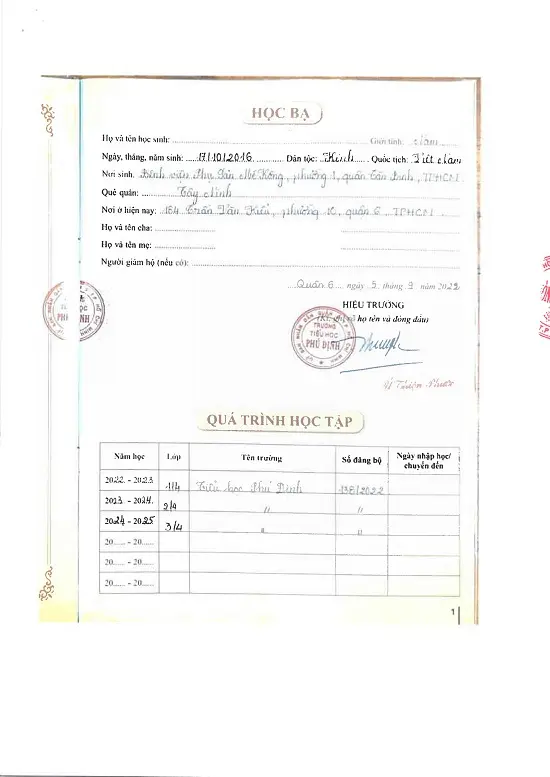 HỌC BẠ
Họ và tên học sinh: Giới tính: Nam
Ngày, tháng, năm sinh: 17/10/2016 Dân tộc: Kinh Quốc tịch: Việt Nam
Nơi sinh: Bệnh viện Phụ Sản Mê Kông, phường 1, quận Tân Bình, TPHCM
Quê quán: Tây Ninh
Nơi ở hiện nay: 184 Trần Văn Kiểu, phường 10, quận 6 TPHCM
Họ và tên cha:
Họ và tên mẹ:
Người giám hộ (nếu có):
Quận 6 ngày 5 tháng 9 năm 2022
HIỆU TRƯỞNG
họ tên và đóng dấu)
TRƯỜNG
TIỂU HỌC
PHÚ ĐỊNH
QUÁ TRÌNH HỌC TẬP
Năm học Lớp Tên trường Số đăng bộ Ngày nhập học/ chuyển đến
2022 - 2023 1/4 Tiểu học Phú Định 138/2022
2023 - 2024 2/4 // //
2024 - 2025 3/4 // //
20...... - 20......
20...... - 20......
20...... - 20......
1